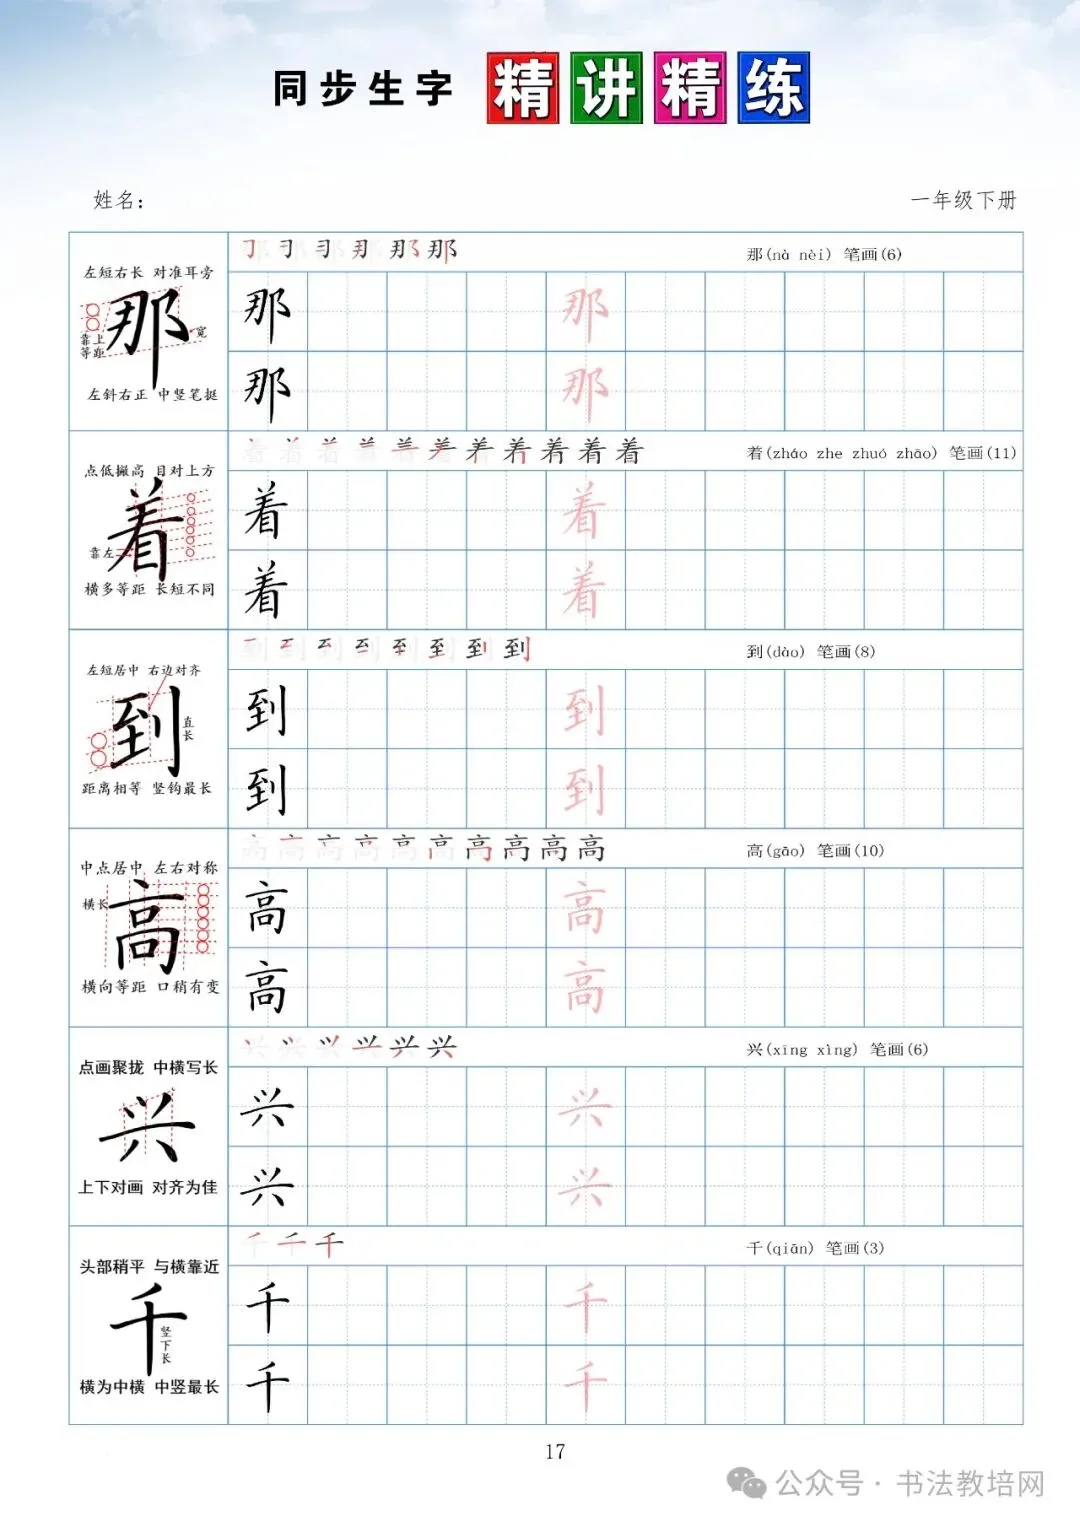 同步生字 精讲精练
姓名： 一年级下册
左短右长 对准耳旁
那
靠上
等距
宽
左斜右正 中竖笔挺
那(nà nèi) 笔画(6)
那 那
那 那
点低撇高 目对上方
着
靠左
横多等距 长短不同
着(zháo zhe zhuó zhāo) 笔画(11)
着 着
着 着
左短居中 右边对齐
到
直长
距离相等 竖钩最长
到(dào) 笔画(8)
到 到
到 到
中点居中 左右对称
横长
高
横向等距 口稍有变
高(gāo) 笔画(10)
高 高
高 高
点画聚拢 中横写长
兴
上下对画 对齐为佳
兴(xīng xìng) 笔画(6)
兴 兴
兴 兴
头部稍平 与横靠近
千
竖下长
横为中横 中竖最长
千(qiān) 笔画(3)
千 千
千 千
17
公众号·书法教培网